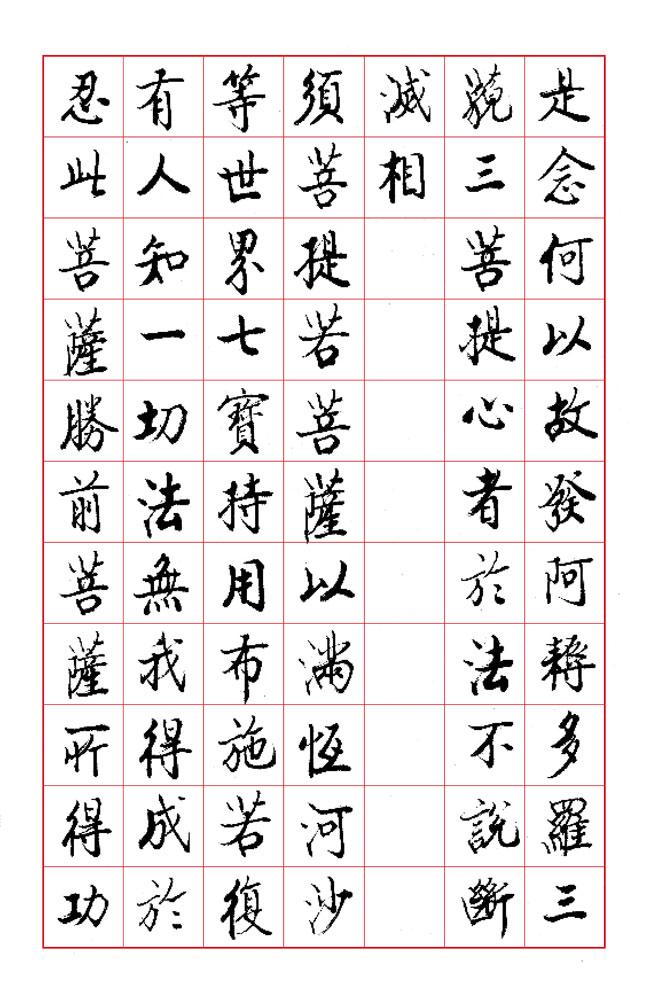 是念何以故發阿耨多羅三
藐三菩提心者於法不說斷
滅相
須菩提若菩薩以滿恆河沙
等世界七寶持用布施若復
有人知一切法無我得成於
忍此菩薩勝前菩薩所得功